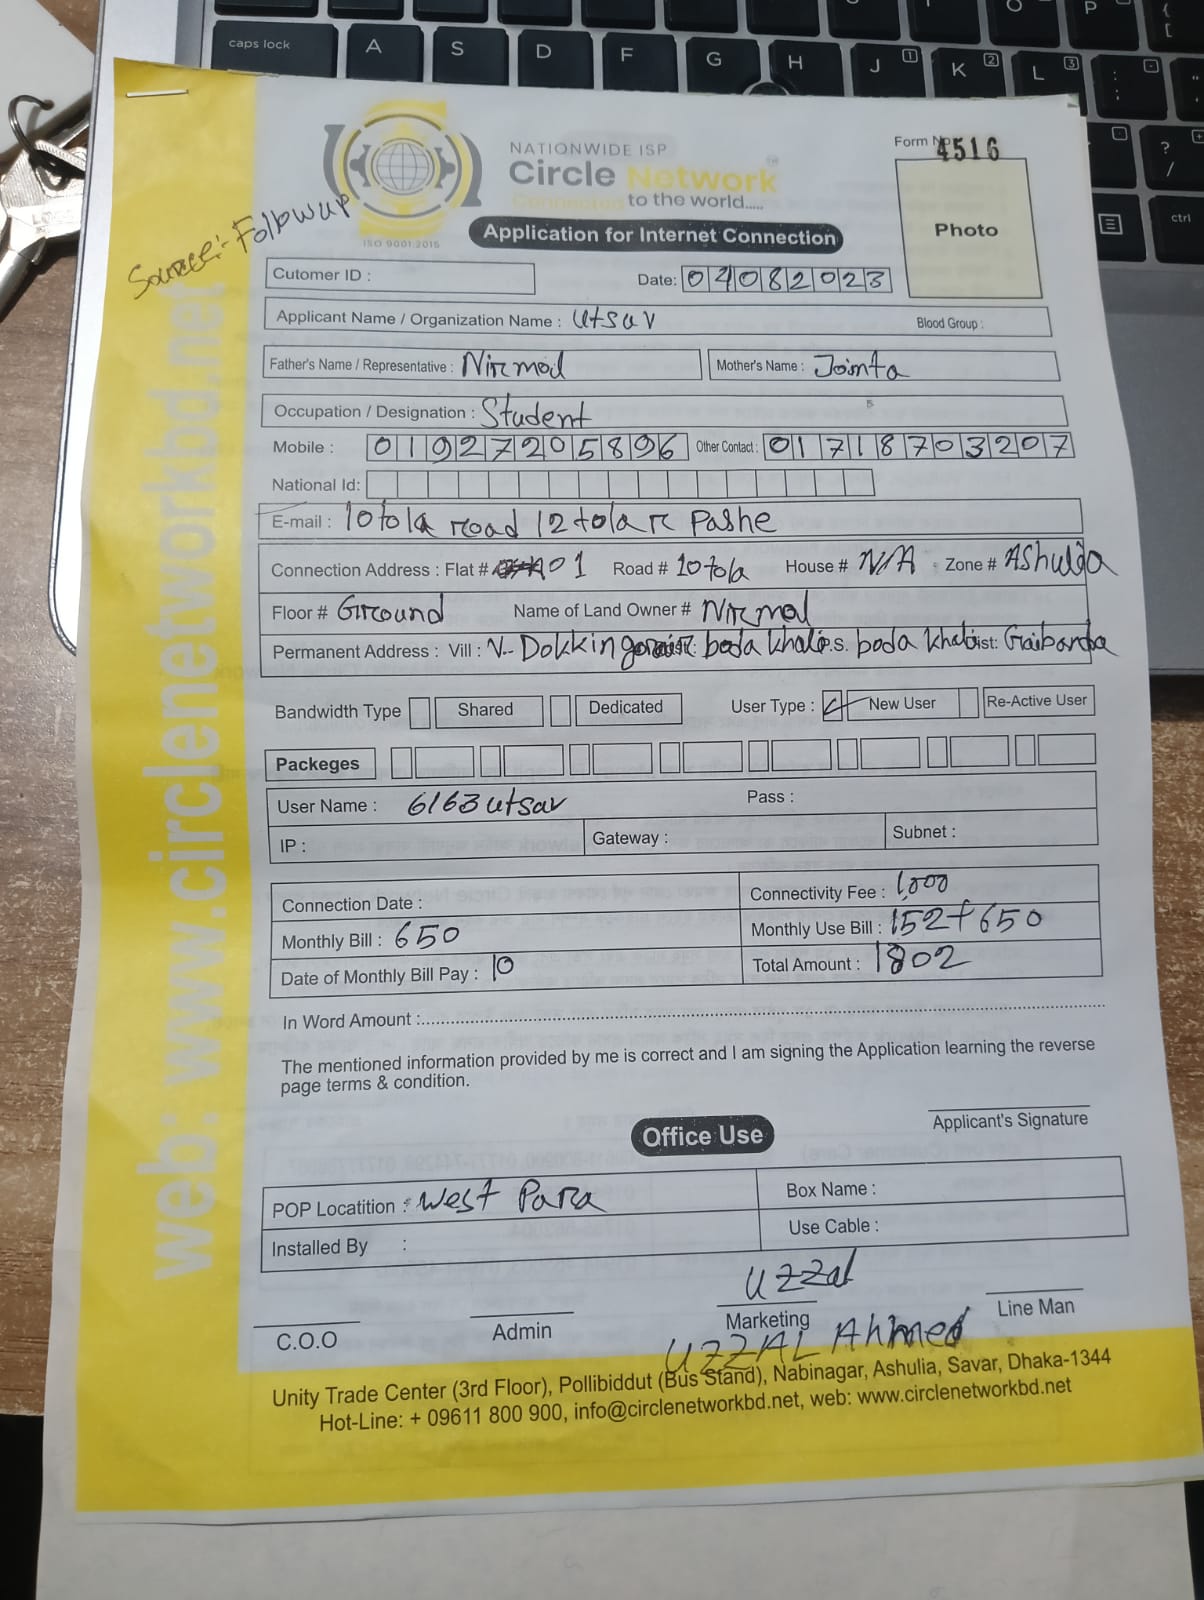 caps lock A S D F G H J 1 K 2 L 3 O P
ctrl
NATIONWIDE ISP
Circle Network
Connected to the world.....
ISO 9001:2015
Form No 4516
Photo
Source:- Followup
Application for Internet Connection
Cutomer ID :
Date: 04082023
Applicant Name / Organization Name : Utsav Blood Group :
Father's Name / Representative : Nirmod Mother's Name : Jointa
Occupation / Designation : Student
Mobile : 01927205896 Other Contact : 01718703207
National Id:
E-mail : 10 tola road 12 tola r Pashe
Connection Address : Flat # 01 Road # 10 tola House # N/A Zone # Ashulia
Floor # Ground Name of Land Owner # Nirmal
Permanent Address : Vill : N-- Dokkin boda khali P.S. boda khali Dist: Gaibanda
Bandwidth Type Shared Dedicated User Type : New User Re-Active User
Packeges
User Name : 6163utsav Pass :
IP : Gateway : Subnet :
Connection Date : Connectivity Fee : 1,000
Monthly Bill : 650 Monthly Use Bill : 152+650
Date of Monthly Bill Pay : 10 Total Amount : 1802
In Word Amount :
The mentioned information provided by me is correct and I am signing the Application learning the reverse
page terms & condition.
Applicant's Signature
Office Use
POP Locatition : West Para Box Name :
Installed By : Use Cable :
Uzzal
C.O.O Admin Marketing Line Man
UZZAL Ahmed
Unity Trade Center (3rd Floor), Pollibiddut (Bus Stand), Nabinagar, Ashulia, Savar, Dhaka-1344
Hot-Line: + 09611 800 900, info@circlenetworkbd.net, web: www.circlenetworkbd.net
web: www.circlenetworkbd.net